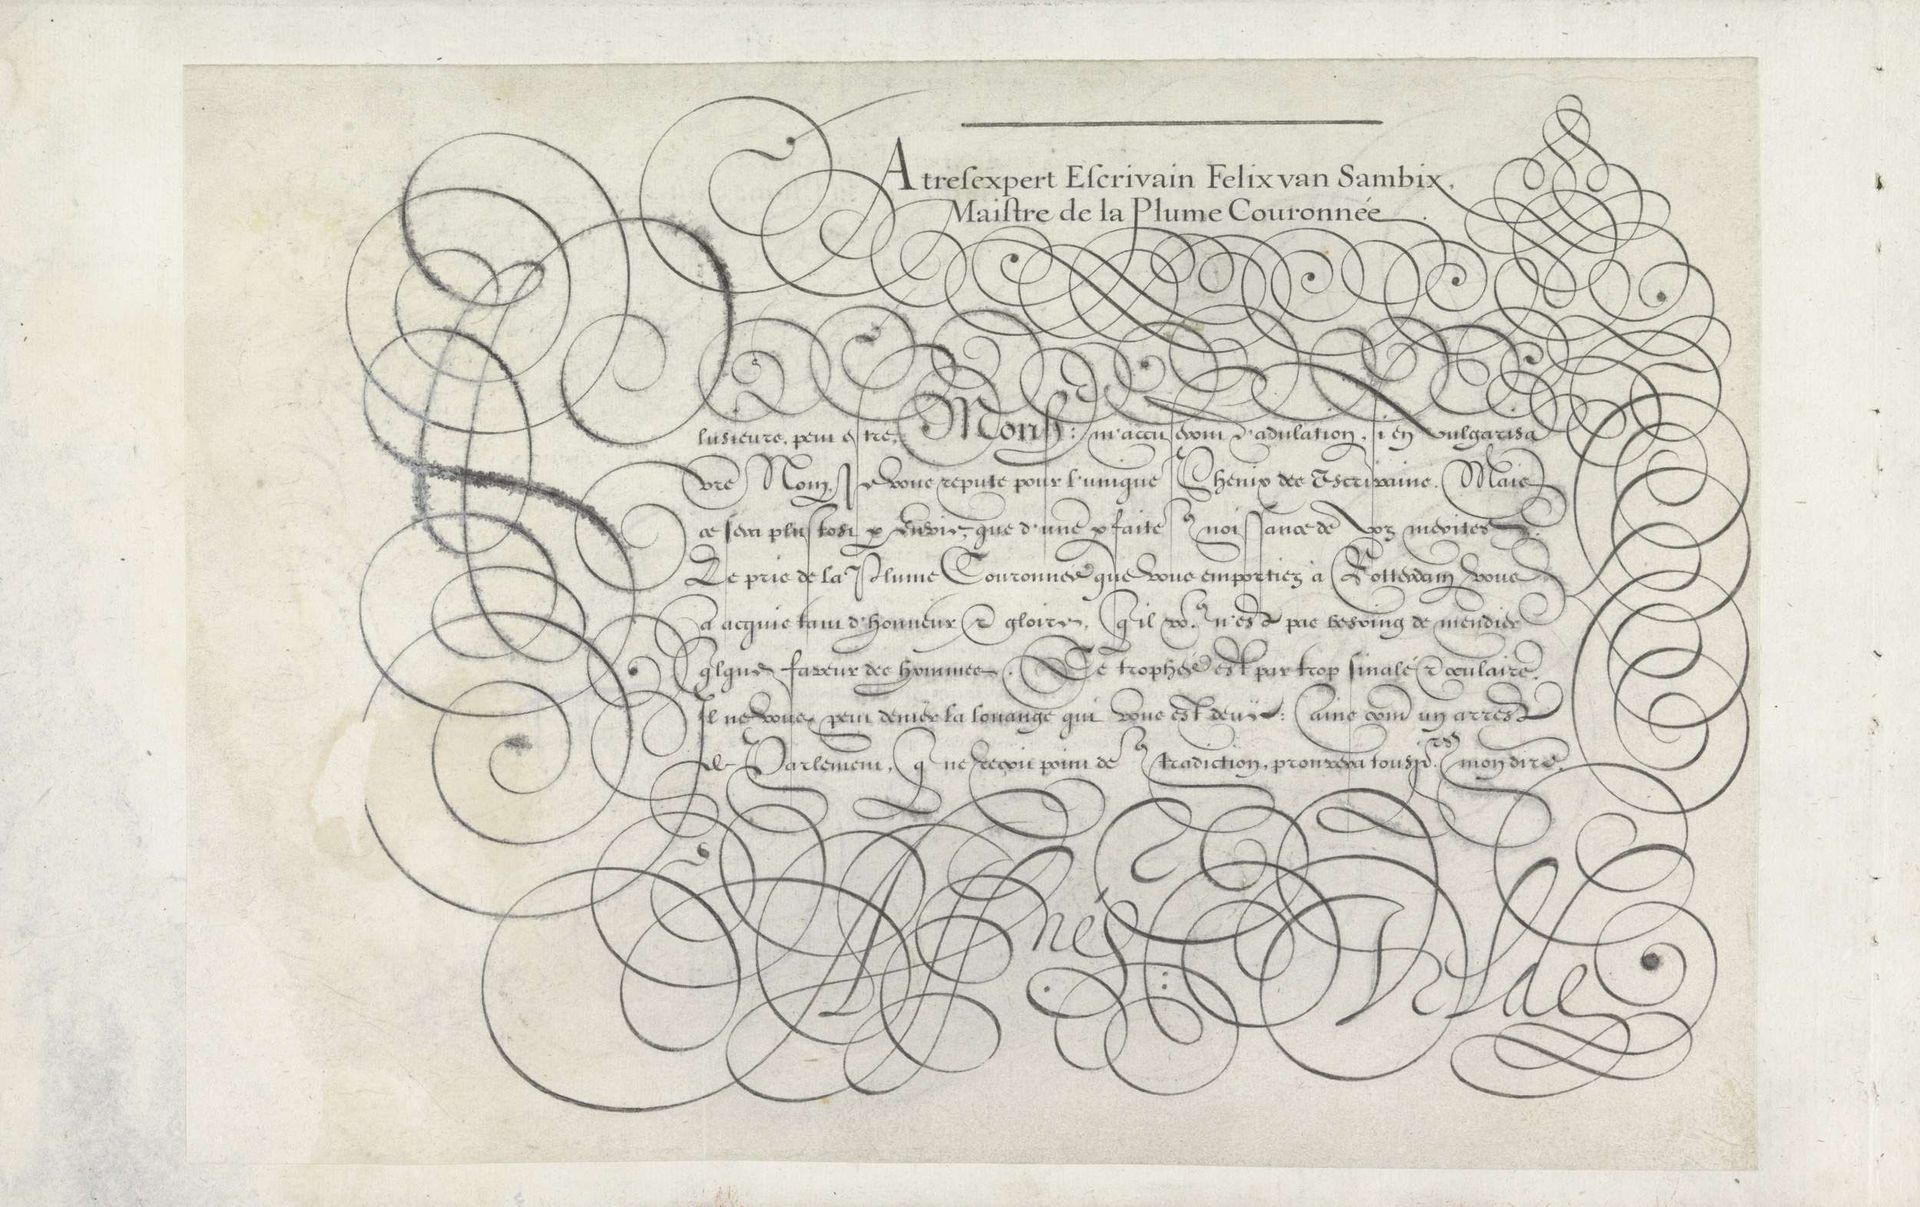 A treſexpert Eſcrivain Felix van Sambix,
Maiſtre de la Plume Couronnée.
Plusieurs, peut estre, Monsr: m'accuseront d'adulation, si en vulgarisā
vre Nom, Je vous repute pour l'unique Phenix des Escrivains. Mais
ce sera plustost envie, que d'une noissance de voz merites.
Le pris de la Plume Couronneé que vous emportiez à Rotterdam vous
a acquis tant d'honneur & gloire, qu'il n'est pas besoing de mendier
qlque faveur des hommes. Ce tropheé est par trop sinalé & oculaire.
Il ne vous peut denier la louange qui vous est deuë: ains com̄ un arrest
de Parlement, q ne reçoit point de tradiction, prouvera mon dire.
Velde